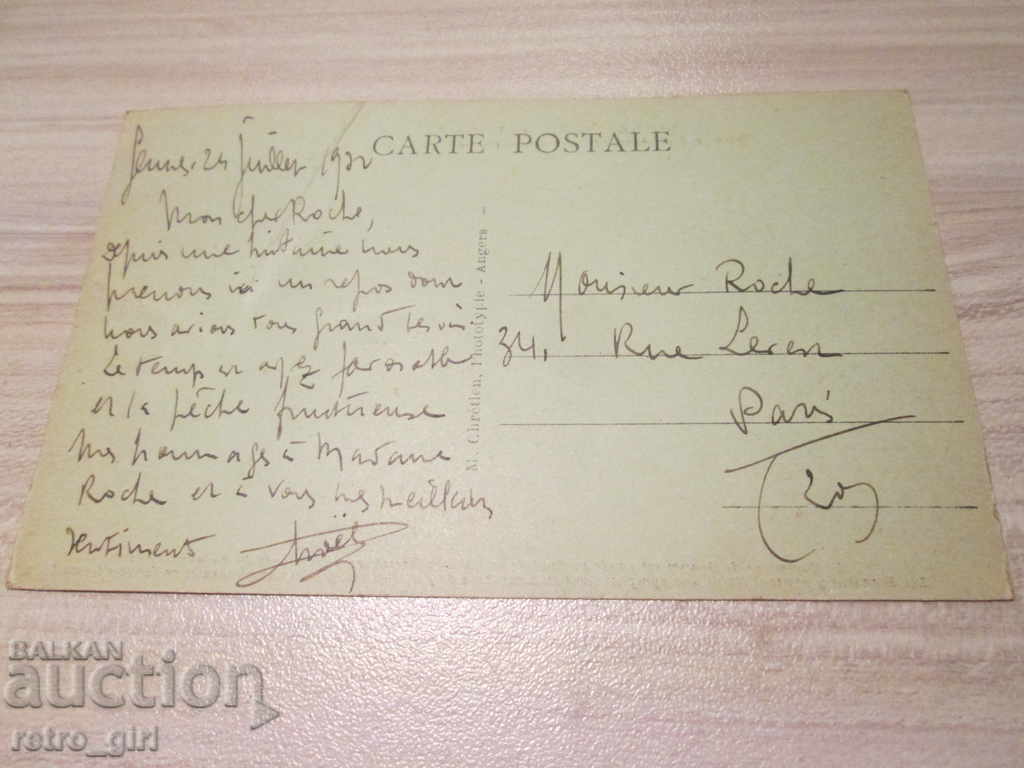 CARTE POSTALE
24 juillet 1932
Mon cher Roche,
depuis une huitaine nous
prenons ici un repos dont
nous avions tous grand besoin
Le temps est assez favorable
et la pêche fructueuse
Mes hommages à Madame
Roche et à vous mes meilleurs
sentiments
M. Chrétien, Phototypie - Angers -
Monsieur Roche
34, Rue
Paris
(20)
BALKAN
auction
retro_girl